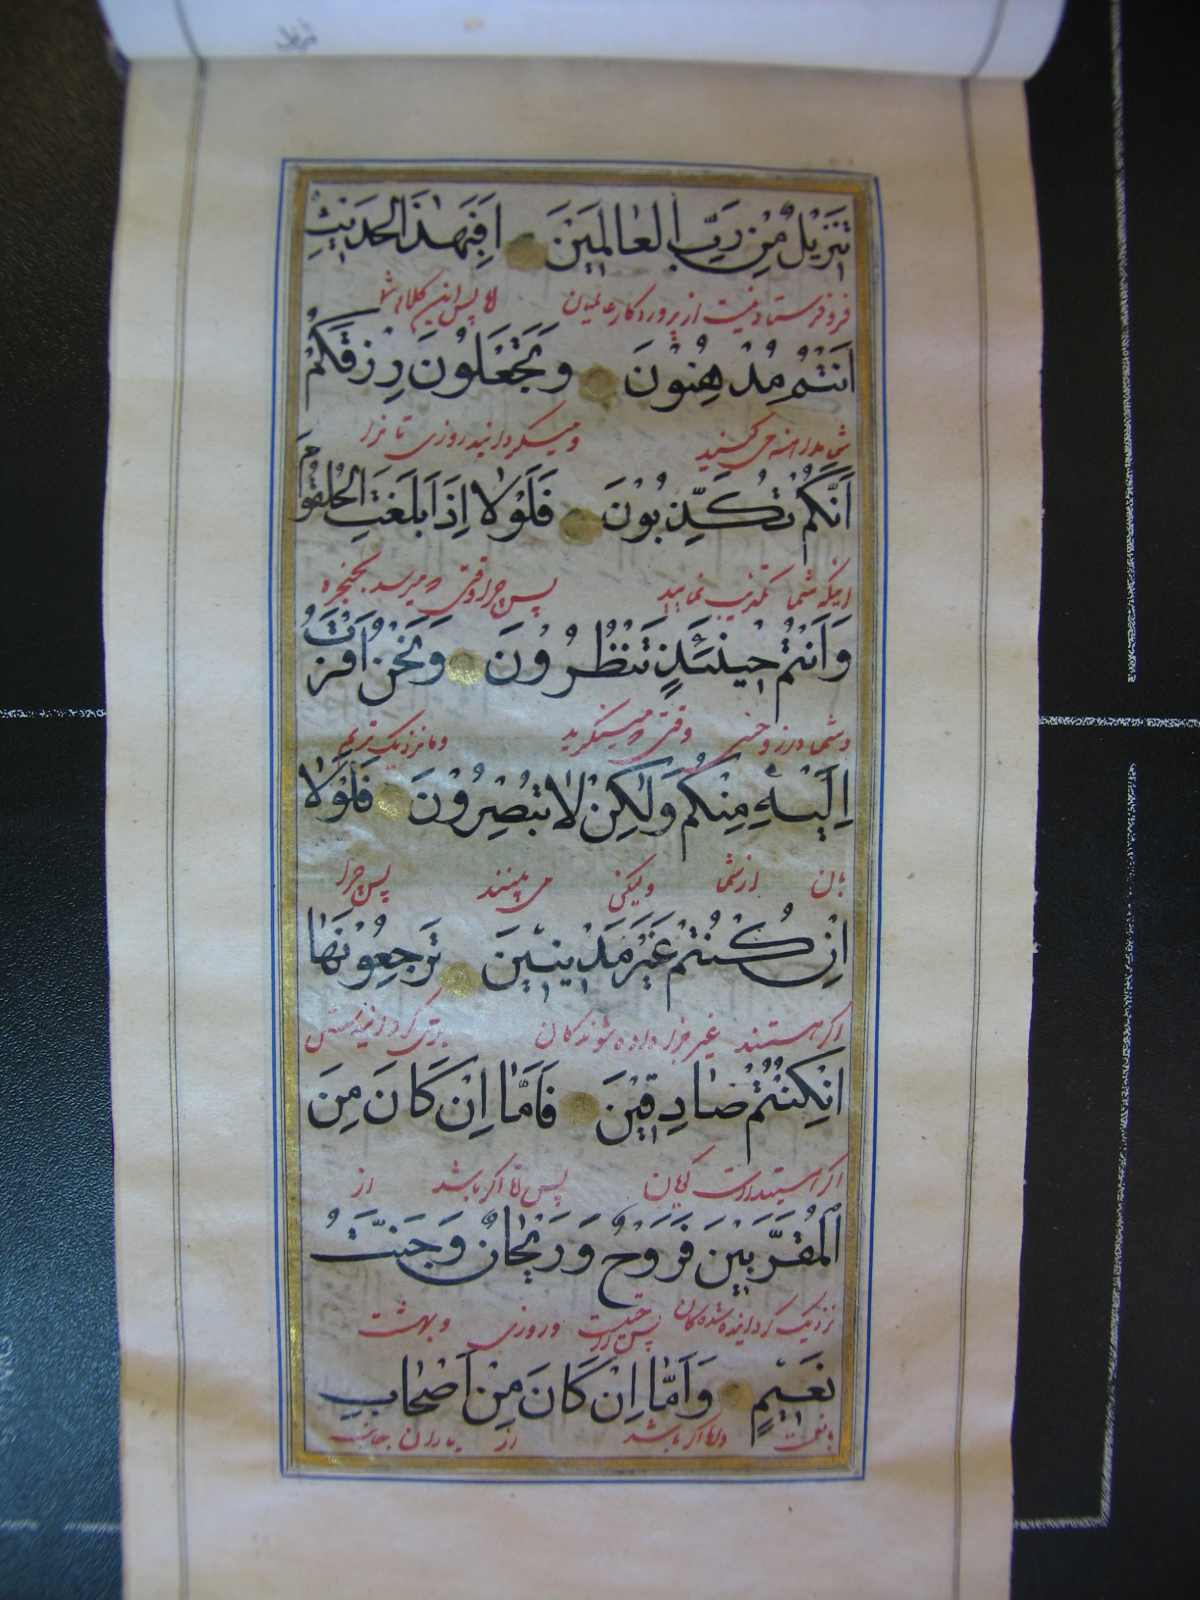 تنزيل
تَنْزِيلٌ مِنْ رَبِّ الْعَالَمِينَ اَفَبِهَذَا الْحَدِيثِ
فروفرستاد نیست از پروردگار عالمیان پس این کلام
اَنْتُمْ مُدْهِنُونَ وَتَجْعَلُونَ رِزْقَكُمْ
شما مداهنه می کنید و میگردانید روزی
اَنَّكُمْ تُكَذِّبُونَ فَلَوْلَا اِذَا بَلَغَتِ الْحُلْقُومَ
اینکه شما تکذیب نمایید پس چرا وقتی که میرسد بحنجره
وَاَنْتُمْ حِينَئِذٍ تَنْظُرُونَ وَنَحْنُ اَقْرَبُ
و شما در وقتی که مینگرید و ما نزدیک تریم
اِلَيْهِ مِنْكُمْ وَلٰكِنْ لَا تُبْصِرُونَ فَلَوْلَا
بان از شما ولیکن می بینند پس چرا
اِنْ كُنْتُمْ غَيْرَ مَدِينِينَ تَرْجِعُونَهَا
اگر هستند غیر جزا داده شوندگان
اِنْ كُنْتُمْ صَادِقِينَ فَاَمَّا اِنْ كَانَ مِنَ
اگر پس اما اگر باشد از
الْمُقَرَّبِينَ فَرَوْحٌ وَرَيْحَانٌ وَجَنَّتُ
نزدیک گردانیده شده کان پس و روزی و بهشت
نَعِيمٍ وَاَمَّا اِنْ كَانَ مِنْ اَصْحَابِ
با نعمت و اما اگر باشد از یاران جانب